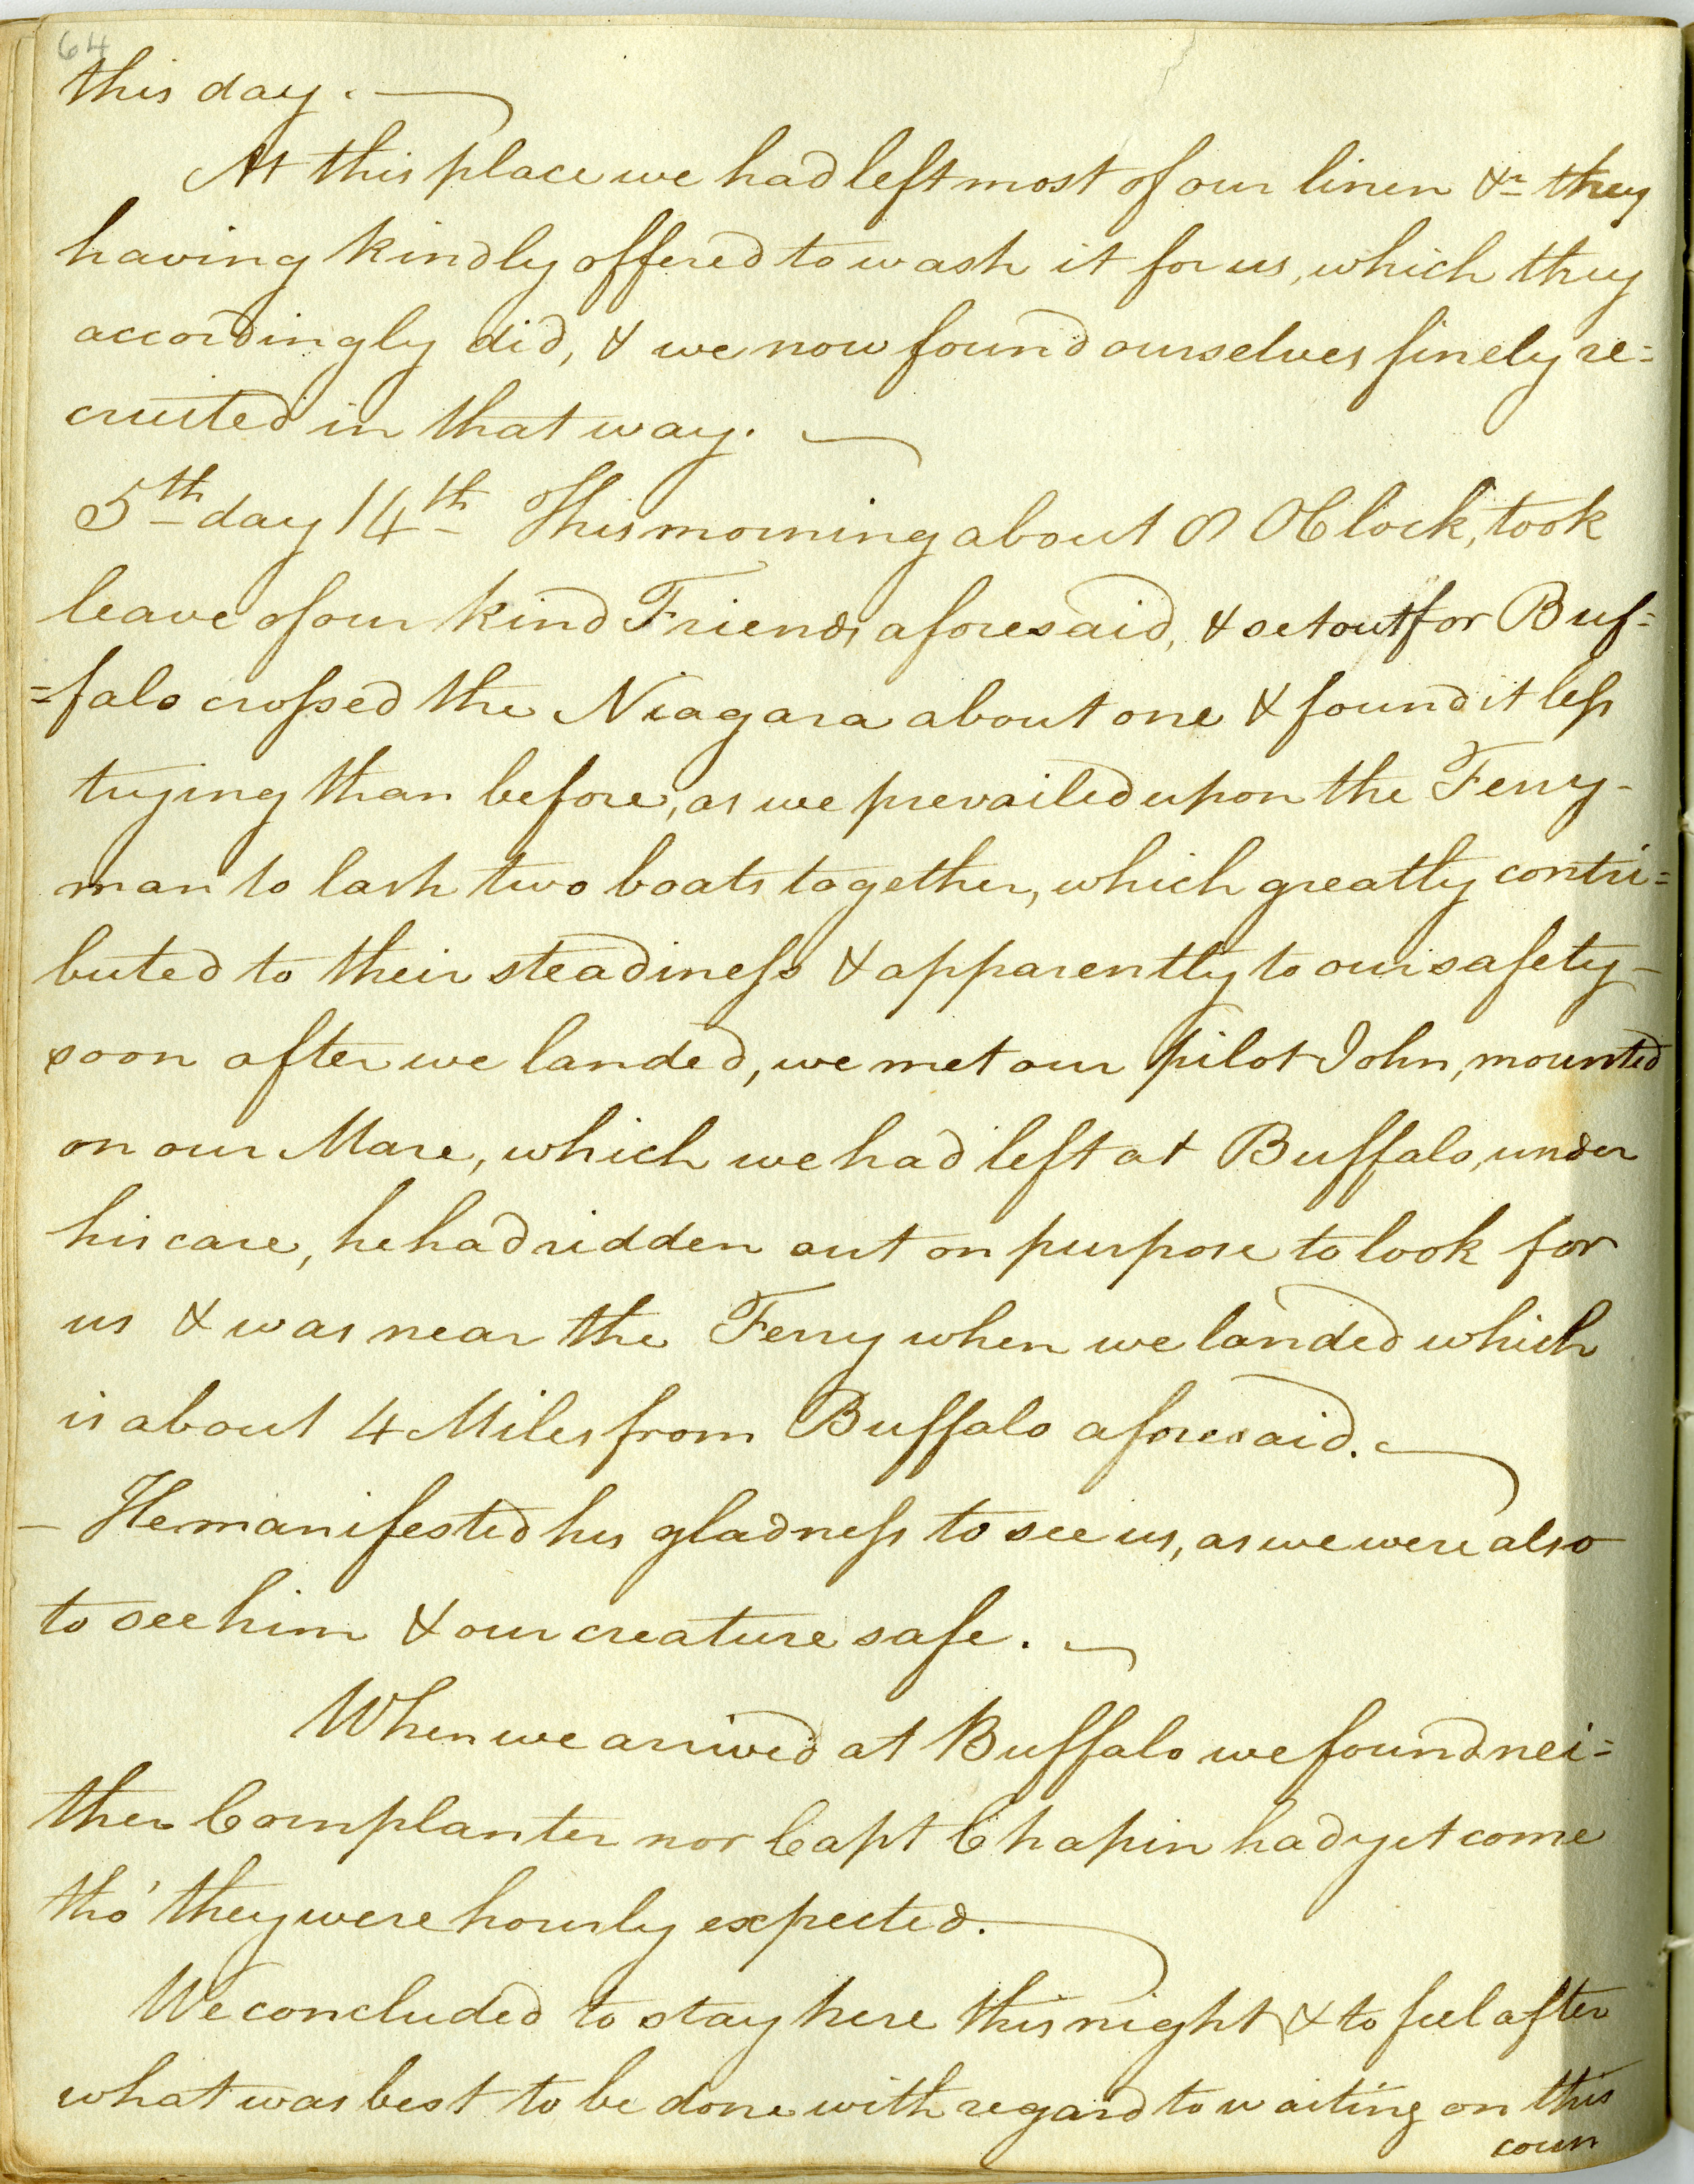 64
this day. —
At this place we had left most of our linen &c they
having kindly offered to wash it for us, which they
accordingly did, & we now found ourselves finely re=
cruited in that way. —
5th day 14th This morning about 8 OClock, took
leave of our kind Friends aforesaid, & set out for Buf=
=falo crossed the Niagara about one & found it less
trying than before, as we prevailed upon the Ferry-
man to lash two boats together, which greatly contri=
buted to their steadiness & apparently to our safety —
soon after we landed, we met our pilot John, mounted
on our Mare, which we had left at Buffalo, under
his care, he had ridden out on purpose to look for
us & was near the Ferry when we landed which
is about 4 Miles from Buffalo aforesaid. —
— He manifested his gladness to see us, as we were also
to see him & our creature safe. —
When we arrived at Buffalo we found nei=
ther Cornplanter nor Capt Chapin had yet come
tho' they were hourly expected. —
We concluded to stay here this night & to feel after
what was best to be done with regard to waiting on this
coun